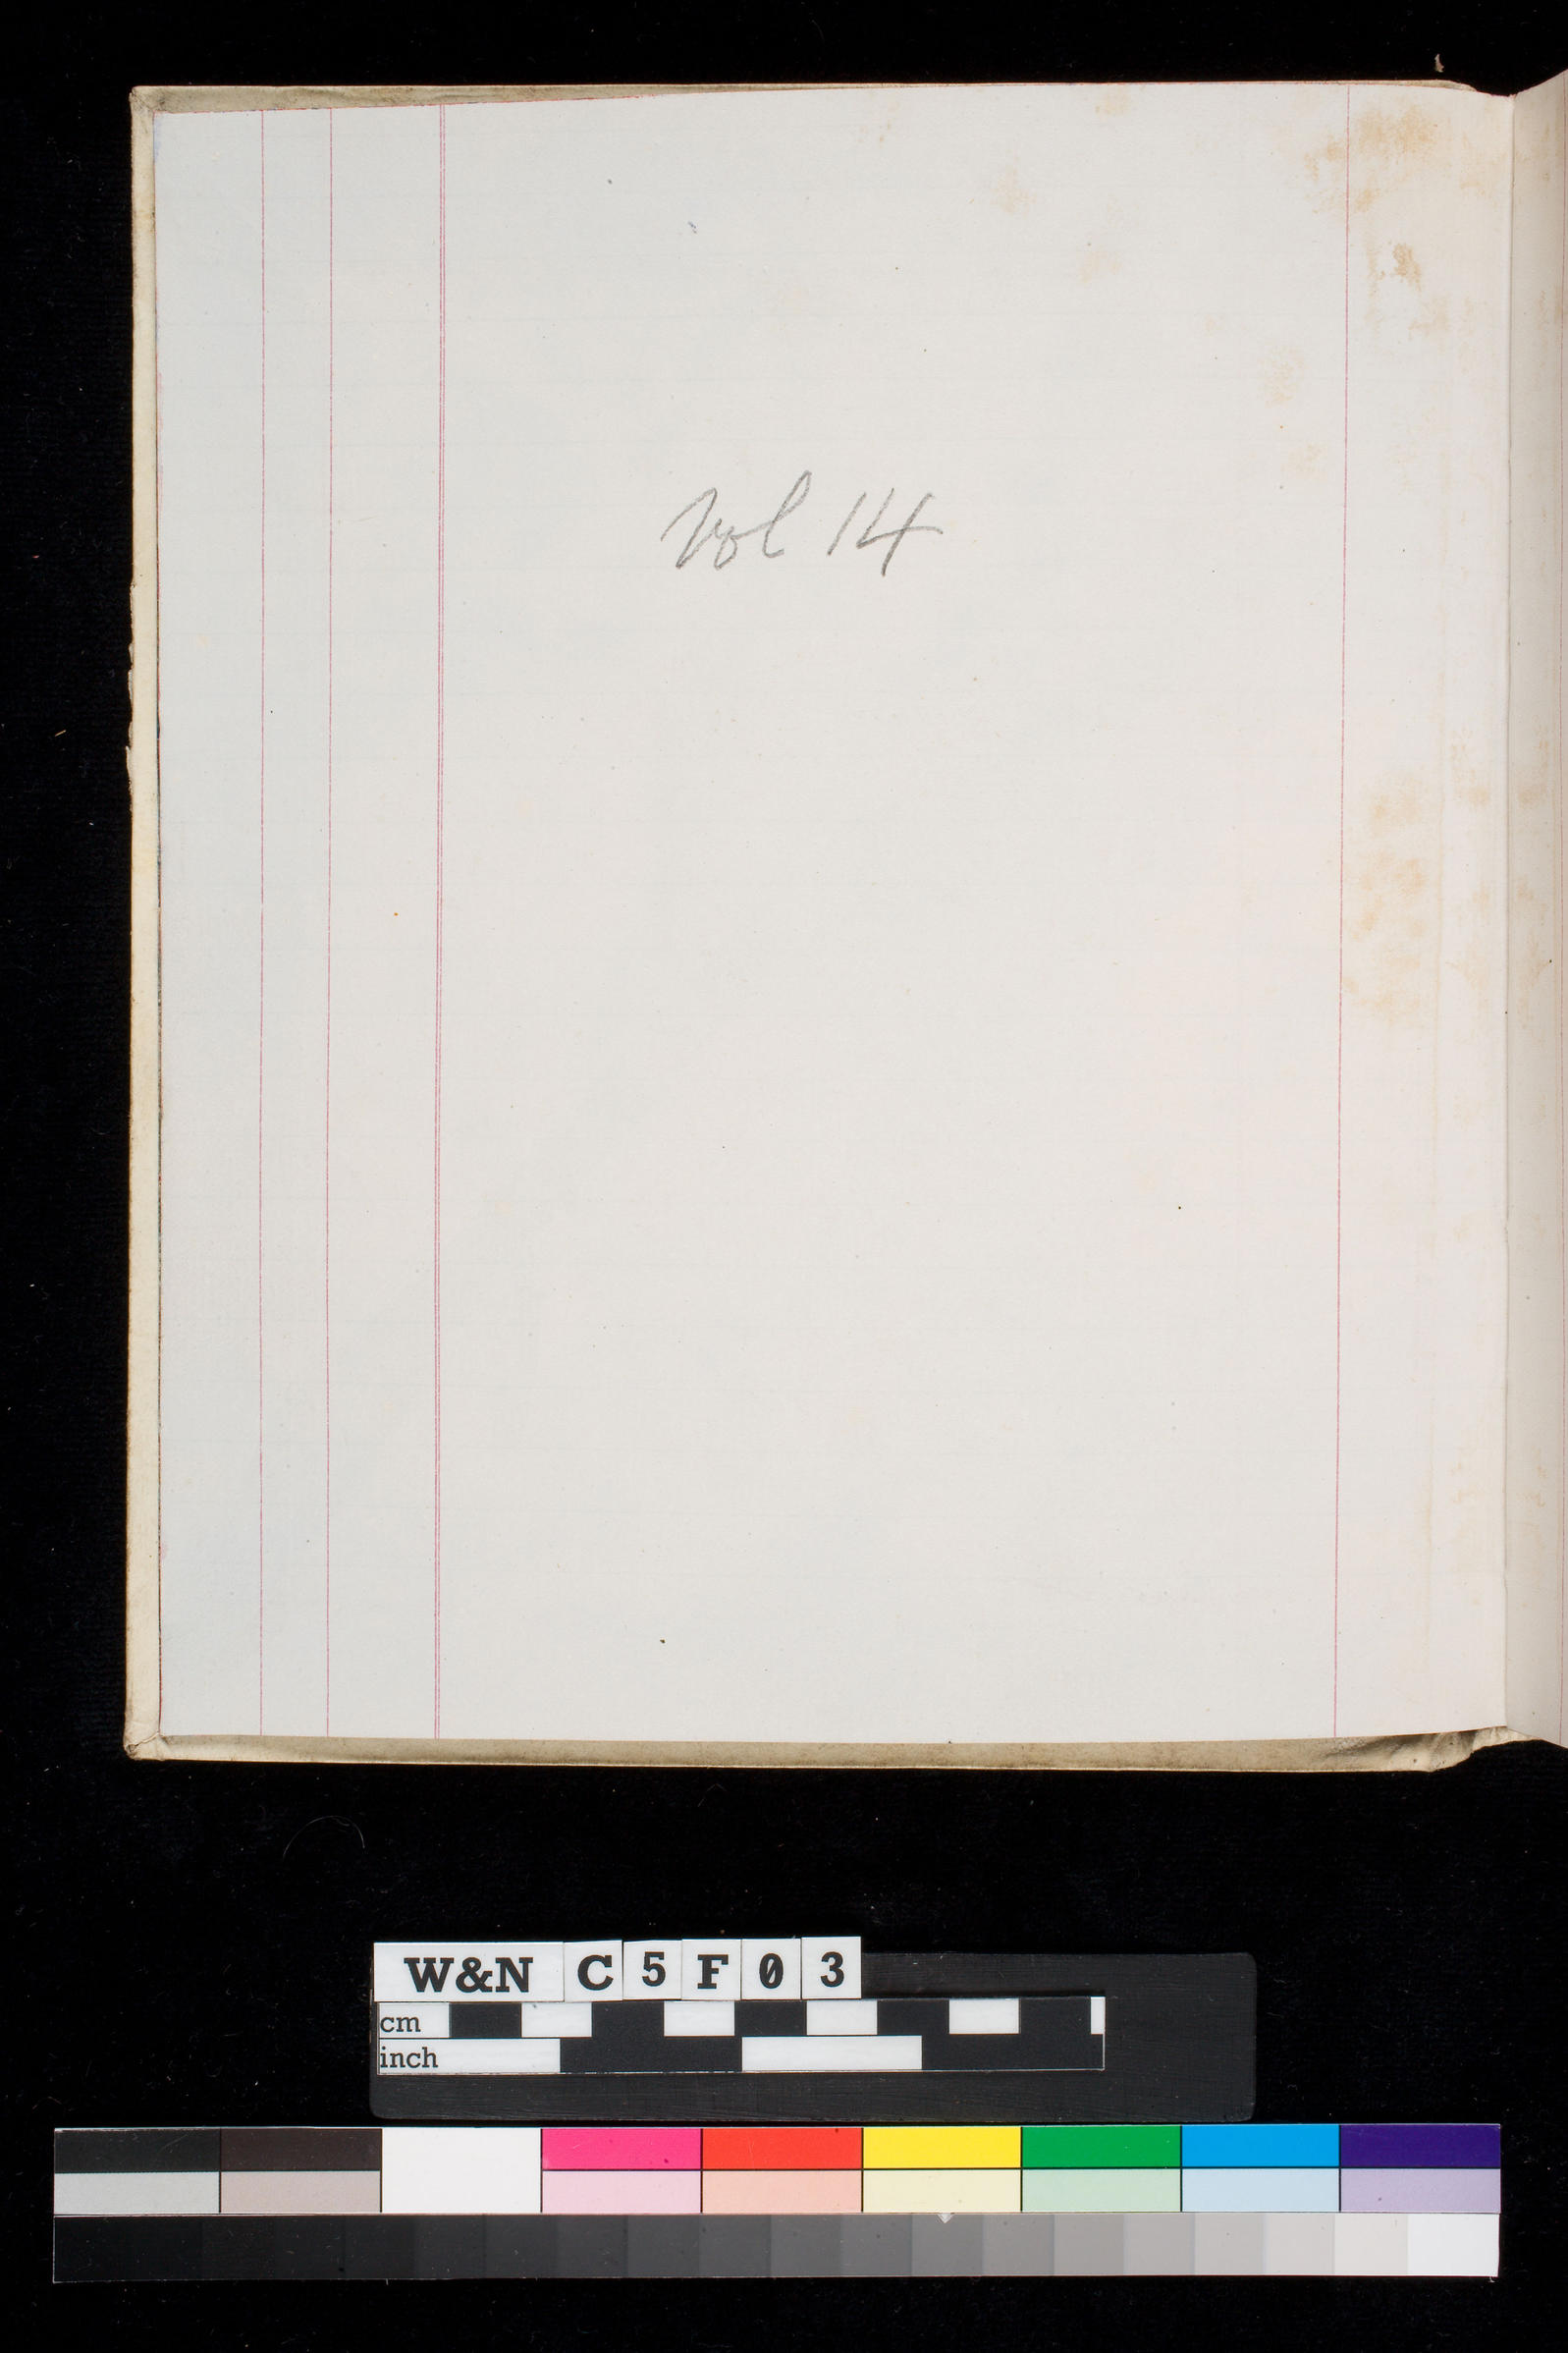 Vol 14
W&N C5F03
cm
inch